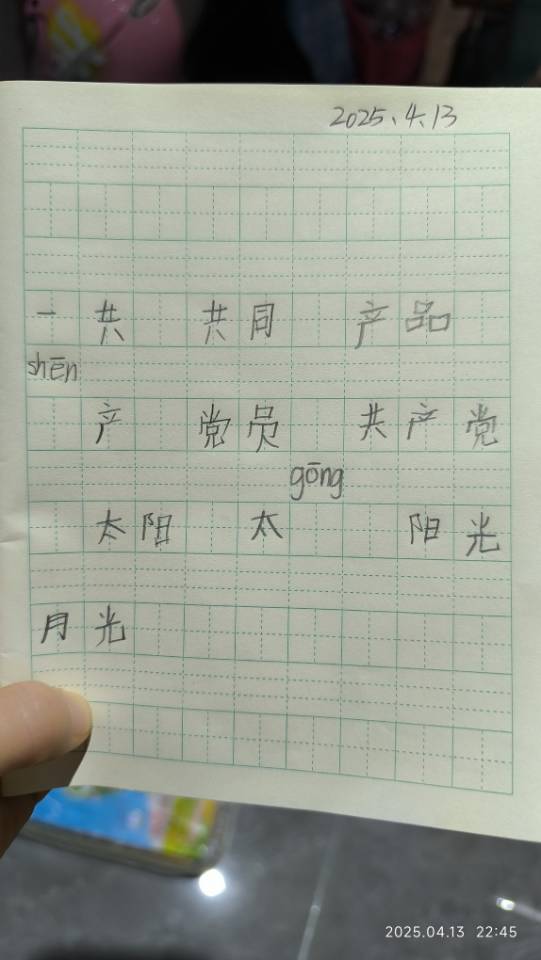 2025.4.13
一共 共同 产品
shēn
产 党员 共产党
gōng
太阳 太 阳光
月光
2025.04.13 22:45